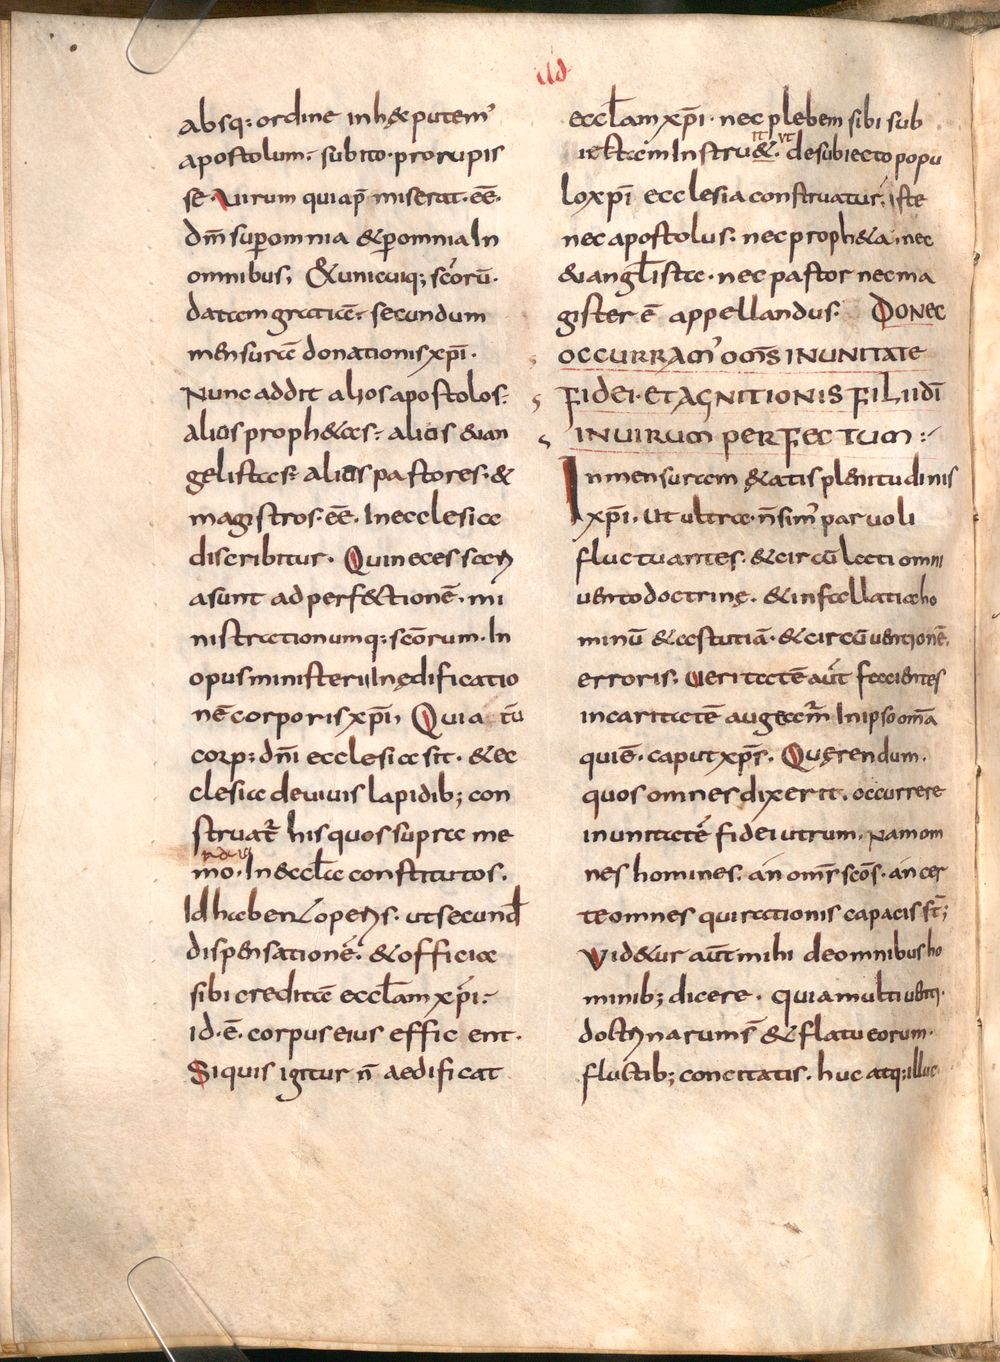 ud
absq: ordine inhęc putem᾿
apostolum. subito prorupis
se. Uirum quiap̄ miserat. eē.
dm̄ sup̄omnia & p̄omnia In
omnibus; & unicuiq; sc̄orū.
datam gratiā. secundum
mensurā donationis xp̄i.
Nunc addit alios apostolos.
alios proph&as. alios euan
gelistas. alios pastores. &
magistros. eē. In ecclesia
discribitur. Qui neces sari
a sunt ad perfectionē. mi
nistrationumq: sc̄orum. In
opus ministerii In ędificatio
nē corporis xp̄i, Quia tū
corp: dn̄i ecclesia sit. & ec
clesia deuiuis lapidib; con
struat᾿ his quos supra me
mo. In eccl̄a constitutos.
Id haben operis. ut secund
dispensationē. & officia
sibi creditā eccl̄am xp̄i.
id. ē. corpus eius effic ent.
Si quis igitur n̄ aedificat
eccl̄am xp̄i. nec plebem sibi sub
rit ut
iectam Instru&. desubiecto popu
lo xp̄i ecclesia construatur; iste
nec apostolus. nec proph&a. nec
euangl̄ista. nec pastor nec ma
gister ē appellandus. DONEC
OCCURRAM᾿ OMS̄ IN UNITATE
FIDEI. ET AGNITIONIS FILII DĪ
IN UIRUM PERFECTUM:
In mensuram &atis plenitudinis
xp̄i. Ut ultra. n̄ sim᾿ paruoli
fluctuantes. & circū lecti omni
uento doctrinę. & infallatia ho
minū & astutiā. & circū uentionē.
erroris. ueritatē aūt facientes
in caritatē augeam᾿ In ipso om̄a
qui ē. caput xp̄s. Quęrendum.
quos omnes dixerit. occurrere
in unitatē fidei utrum. Nam om
nes homines. an om̄s sc̄os. an cer
te omnes qui rationis capacis st̄;
Uid&ur aūt mihi deomnibus ho
minib; dicere. quia multi uenti.
doctrinarum s̄ & flatu eorum.
fluctib; concitatis. huc atq; illuc